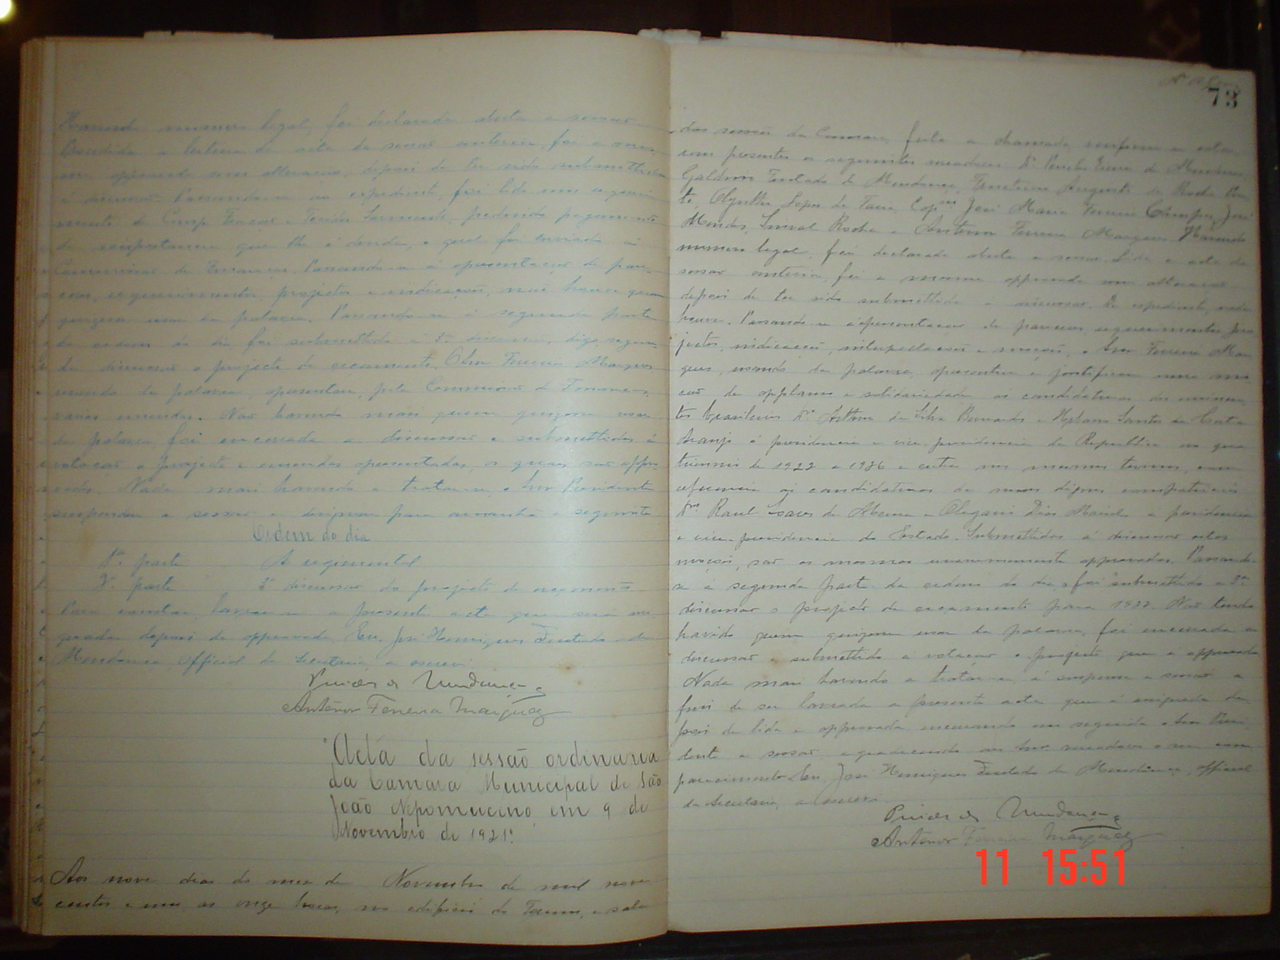 Havendo numero legal, foi declarada aberta a sessão.
Procedida a leitura da acta da sessão anterior, foi a mesma
approvada sem alteração, depois de ter sido submettida
a discussão. Passando-se ao expediente, foi lido um requeri-
mento de Sarmento, pedindo pagamento
de que lhe é devida, o qual foi enviado á
Commissão de Finanças. Passando-se á apresentação de pare-
ceres, requerimentos, projectos e indicações, não houve quem
quizesse usar da palavra. Passando-se á segunda parte
da ordem do dia, foi submettido a 2ª discussão, digo, segun-
da discussão o projecto de orçamento. O Snr Ferreira Marques
usando da palavra apresentou, pela Commissão de Finanças,
emendas. Não havendo mais quem quizesse usar
da palavra, foi encerrada a discussão e submettidos á
votação o projecto e emendas apresentadas, os quaes são appro-
vados. Nada mais havendo a tratar-se, o Snr Presidente
suspendeu a sessão e designou para amanhã a seguinte
Ordem do dia
1ª parte A regimental
2ª parte 3ª discussão do projecto de orçamento
Para constar, lavrou-se a presente acta que será assi-
gnada depois de approvada. Eu, José Henriques Furtado de
Mendonça, official da Secretaria, a escrevi.
de Mendonça
Antenor Ferreira Marques
Acta da sessão ordinaria
da Camara Municipal de São
João Nepomuceno em 9 de
Novembro de 1921.
Aos nove dias do mez de Novembro de mil nove-
centos e um, ás onze horas, no edificio do Forum, e sala
73
das sessões da Camara, feita a chamada, verificou-se esta-
rem presentes os seguintes vereadores: Dr. de Mendonça,
Galdino Furtado de Mendonça, Augusto da Rocha
Olyntho Lopes de Faria, José Maria Ferreira Campos, José
Mendes, Rocha e Antenor Ferreira Marques. Havendo
numero legal, foi declarada aberta a sessão. Lida a acta da
sessão anterior, foi a mesma approvada sem alteração
depois de ter sido submettida a discussão. De expediente, nada
houve. Passando-se á apresentação de pareceres, requerimentos, pro-
jectos, indicações, interpellações e moções, o Snr Ferreira Mar-
ques, usando da palavra, apresentou e justificou uma mo-
ção de applauso e solidariedade ás candidaturas dos eminen-
tes brasileiros Drs Arthur da Silva Bernardes e Urbano Santos da Costa
Araujo á presidencia e vice-presidencia da Republica no qua-
triennio de 1922 a 1926 e outra nos mesmos termos, com
referencia ás candidaturas de nossos dignos
Drs Raul Soares de Moura e Olegario Dias Maciel á presidencia
e vice-presidencia do Estado. Submettidas á discussão estas
moções, são as mesmas unanimemente approvadas. Passando-
se á segunda parte da ordem do dia, foi submettido a 3ª
discussão o projecto de orçamento para 1922. Não tendo
havido quem quizesse usar da palavra, foi encerrada a
discussão e submettido a votação o projecto, que é approvado.
Nada mais havendo a tratar-se, é suspensa a sessão a
fim de ser lavrada a presente acta que é assignada de-
pois de lida e approvada, encerrando em seguida o Snr Presi-
dente a sessão, agradecendo aos Snrs vereadores o seu com-
parecimento. Eu, José Henriques Furtado de Mendonça, official
da Secretaria, a escrevi.
de Mendonça
Antenor Ferreira Marques
11 15:51